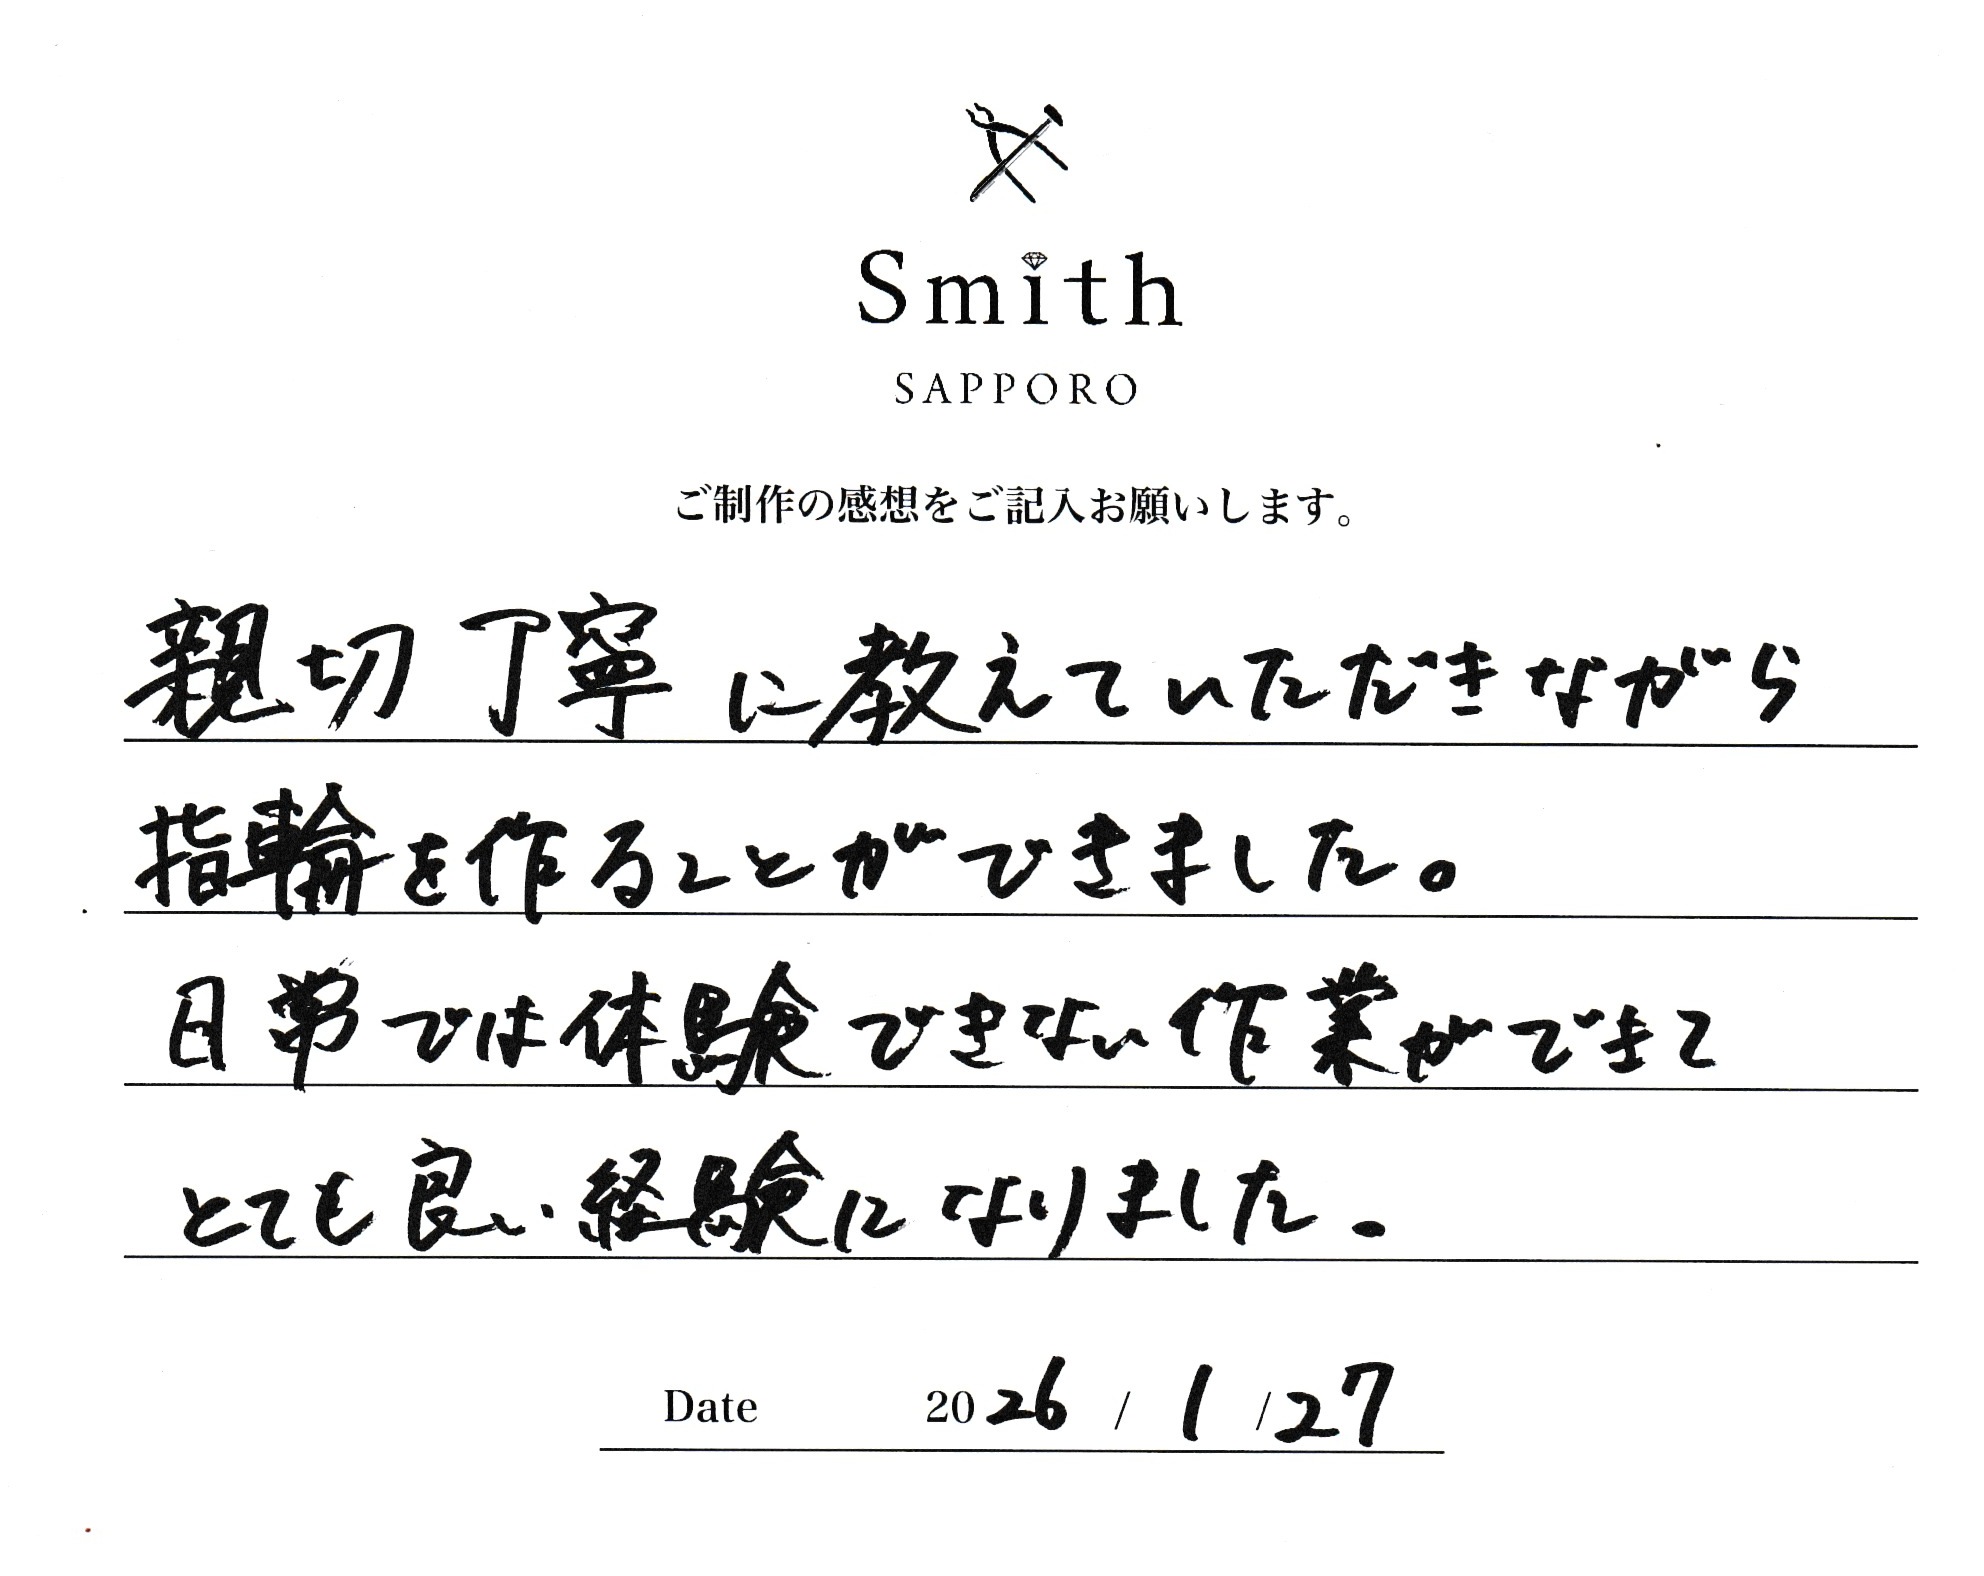 Smith
SAPPORO
ご制作の感想をご記入お願いします。
親切丁寧に教えていただきながら
指輪を作ることができました。
日常では体験できない作業ができて
とても良い経験になりました。
Date 2026 / 1 / 27